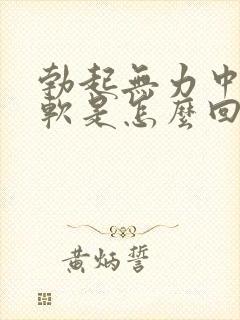 勃起無力中
軟是怎麼回
黃炳誓